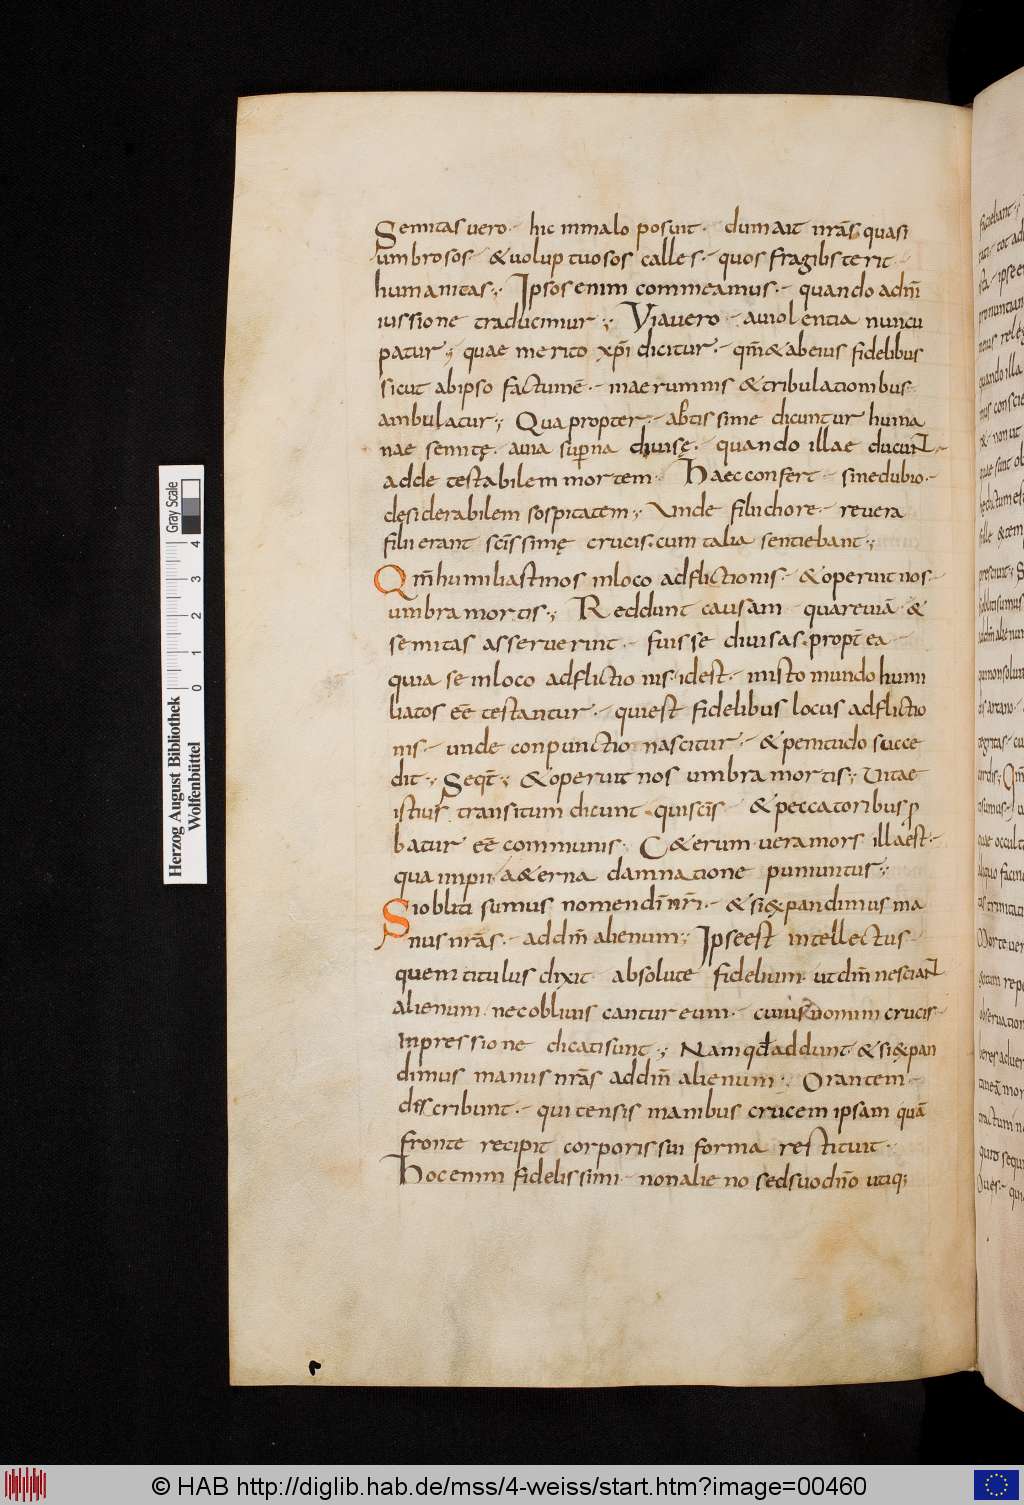 Semitas vero hic in malo posuit dum ait nr̄as quasi
umbrosos & voluptuosos calles quos fragilis terit
humanitas Ipsos enim commeamus quando ad dn̄i
iussione traducimur Via vero a violentia nuncu
patur quae merito xp̄i dicitur qm̄ & ab eius fidelibus
sicut ab ipso factum ē in aerumnis & tribulationibus
ambulatur Quapropter aptissime dicuntur huma
nae semitę a via superna divisę quando illae ducunt
ad detestabilem mortem Haec confert sine dubio
desiderabilem sospitatem Unde filii chore revera
filii erant sc̄issimę crucis cum talia sentiebant
Qm̄ humiliasti nos in loco adflictionis & operuit nos
umbra mortis Reddunt causam quare viā &
semitas asseruerint fuisse divisas propt̄ea
quia se in loco adflictionis id est in isto mundo humi
liatos ēē testantur qui est fidelibus locus adflictio
nis unde conpunctio nascitur & penitudo succe
dit Seqt̄ & operuit nos umbra mortis Vitae
istius transitum dicunt qui sc̄is & peccatoribus p
batur ēē communis C&erum vera mors illa est
qua impii a&erna damnatione puniuntur
Si obliti sumus nomen dī nr̄i & si expandimus ma
nus nr̄as ad dm̄ alienum Ipse est intellectus
quem titulus dixit absolute fidelium ut dm̄ nesciant
alienum nec oblivis cantur eum cuius nomini crucis
inpressione dicati sunt Nam qđ addunt & si expan
dimus manus nr̄as ad dm̄ alienum Orantem
describunt qui tensis manibus crucem ipsam quā
fronte recipit corporis sui forma restituit
Hoc enim fidelissimi non alieno sed suo dn̄o utiq;
Herzog August Bibliothek
Wolfenbüttel
0 1 2 3 4
Gray Scale
© HAB http://diglib.hab.de/mss/4-weiss/start.htm?image=00460